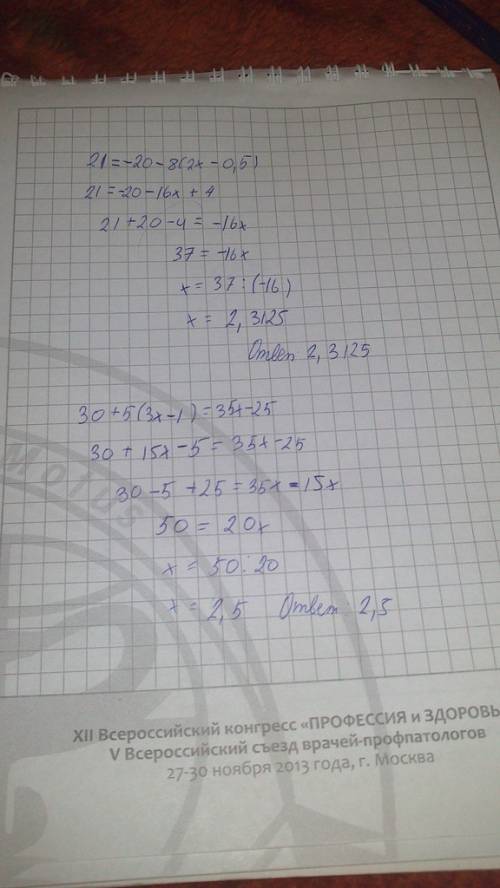 21=-20-8(2x-0,5)
21=-20-16x+4
21+20-4=-16x
37=-16x
x=37:(-16)
x=2,3125
Ответ 2,3125
30+5(3x-1)=35x-25
30+15x-5=35x-25
30-5+25=35x-15x
50=20x
x=50:20
x=2,5 Ответ: 2,5
MOTUS
XII Всероссийский конгресс «ПРОФЕССИЯ и ЗДОРОВЬ
V Всероссийский съезд врачей-профпатологов
27-30 ноября 2013 года, г. Москва